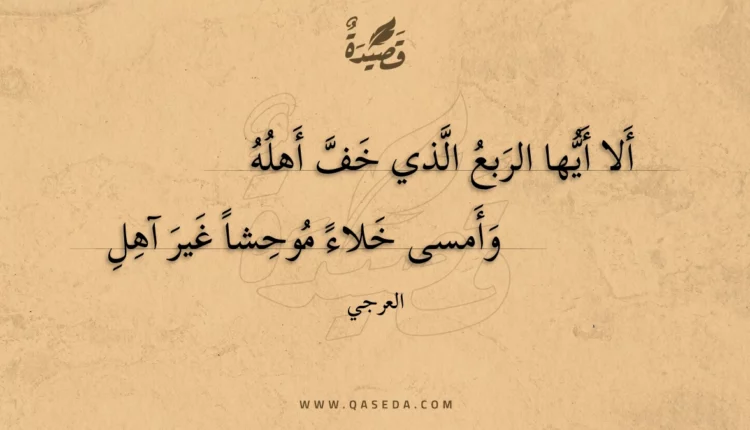 قَصِيْدَةٌ
أَلا أَيُّها الرَبعُ الَّذي خَفَّ أَهلُهُ
وَأَمسى خَلاءً مُوحِشاً غَيرَ آهِلِ
العرجي
WWW.QASEDA.COM